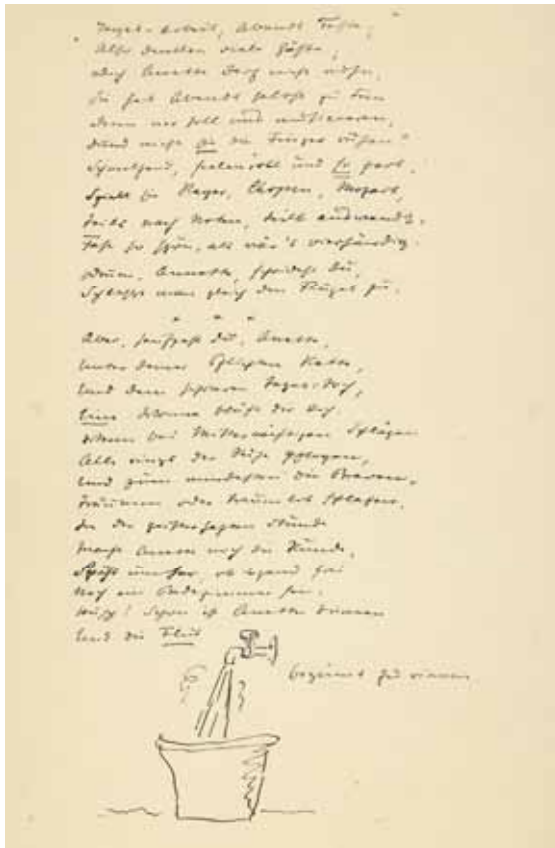 „Tages-Arbeit, Abends Feste,"
Also denken viele Gäste,
Doch Annette darf nicht ruhn,
Sie hat Abends selbst zu tun
Denn wer soll und musizieren,
und nicht die Finger rühren?
und so zart,
Spielt sie Reger, Chopin, Mozart,
teils nach Noten, teils auswendig,
Fast so schön, als wär's vierhändig.
Drum, Annette, scheidest du,
Schliesst man gleich den Flügel zu.
* * *
Aber, seufzest du, Annette,
Unter deiner Pflichten Kette,
Und dem schweren Tages-Joch,
Eine Wonne blüht dir doch.
Wenn bei Mitternächtigen Schlägen
Alle rings der Ruhe pflegen,
Und zum mindesten die Braven,
Träumen oder traumlos schlafen,
In der geisterhaften Stunde
Macht Annette noch die Runde,
Späht umher, ob irgend frei
Noch ein Badezimmer sei.
Husch! Schon ist Annette drinnen
Und die Flut
beginnt zu rinnen